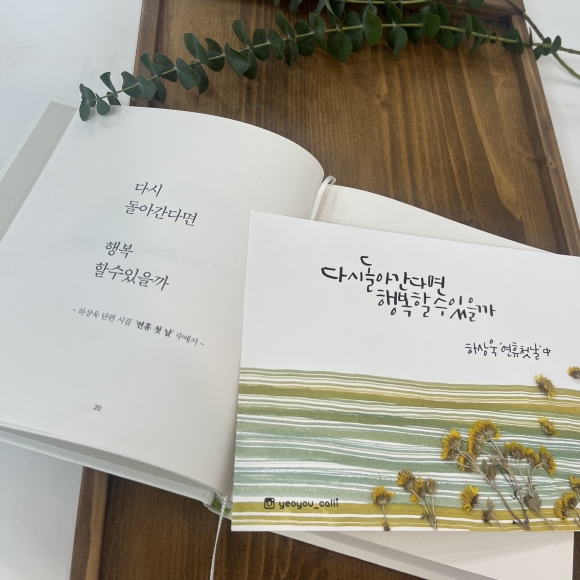 다시
돌아간다면
행복
할수있을까
~ 하상욱 단편 시집 '연휴 첫 날' 中에서 ~
20
다시돌아간다면
행복할수있을까
하상욱 '연휴첫날' 中
yeoyou_calli